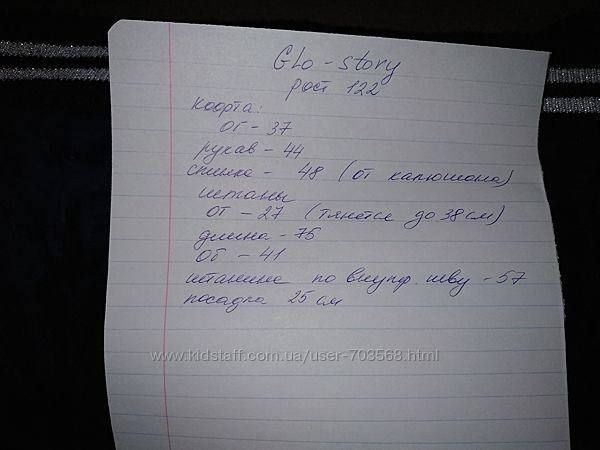 Glo-story
рост 122
Коорта:
ОГ - 37
рукав - 44
спинка - 48 (от капюшона)
штаны
от - 27 (тянется до 38 см)
длина - 76
об - 41
штанина по внутр. шву - 57
посадка 25 см
www.kidstaff.com.ua/user-703568.html